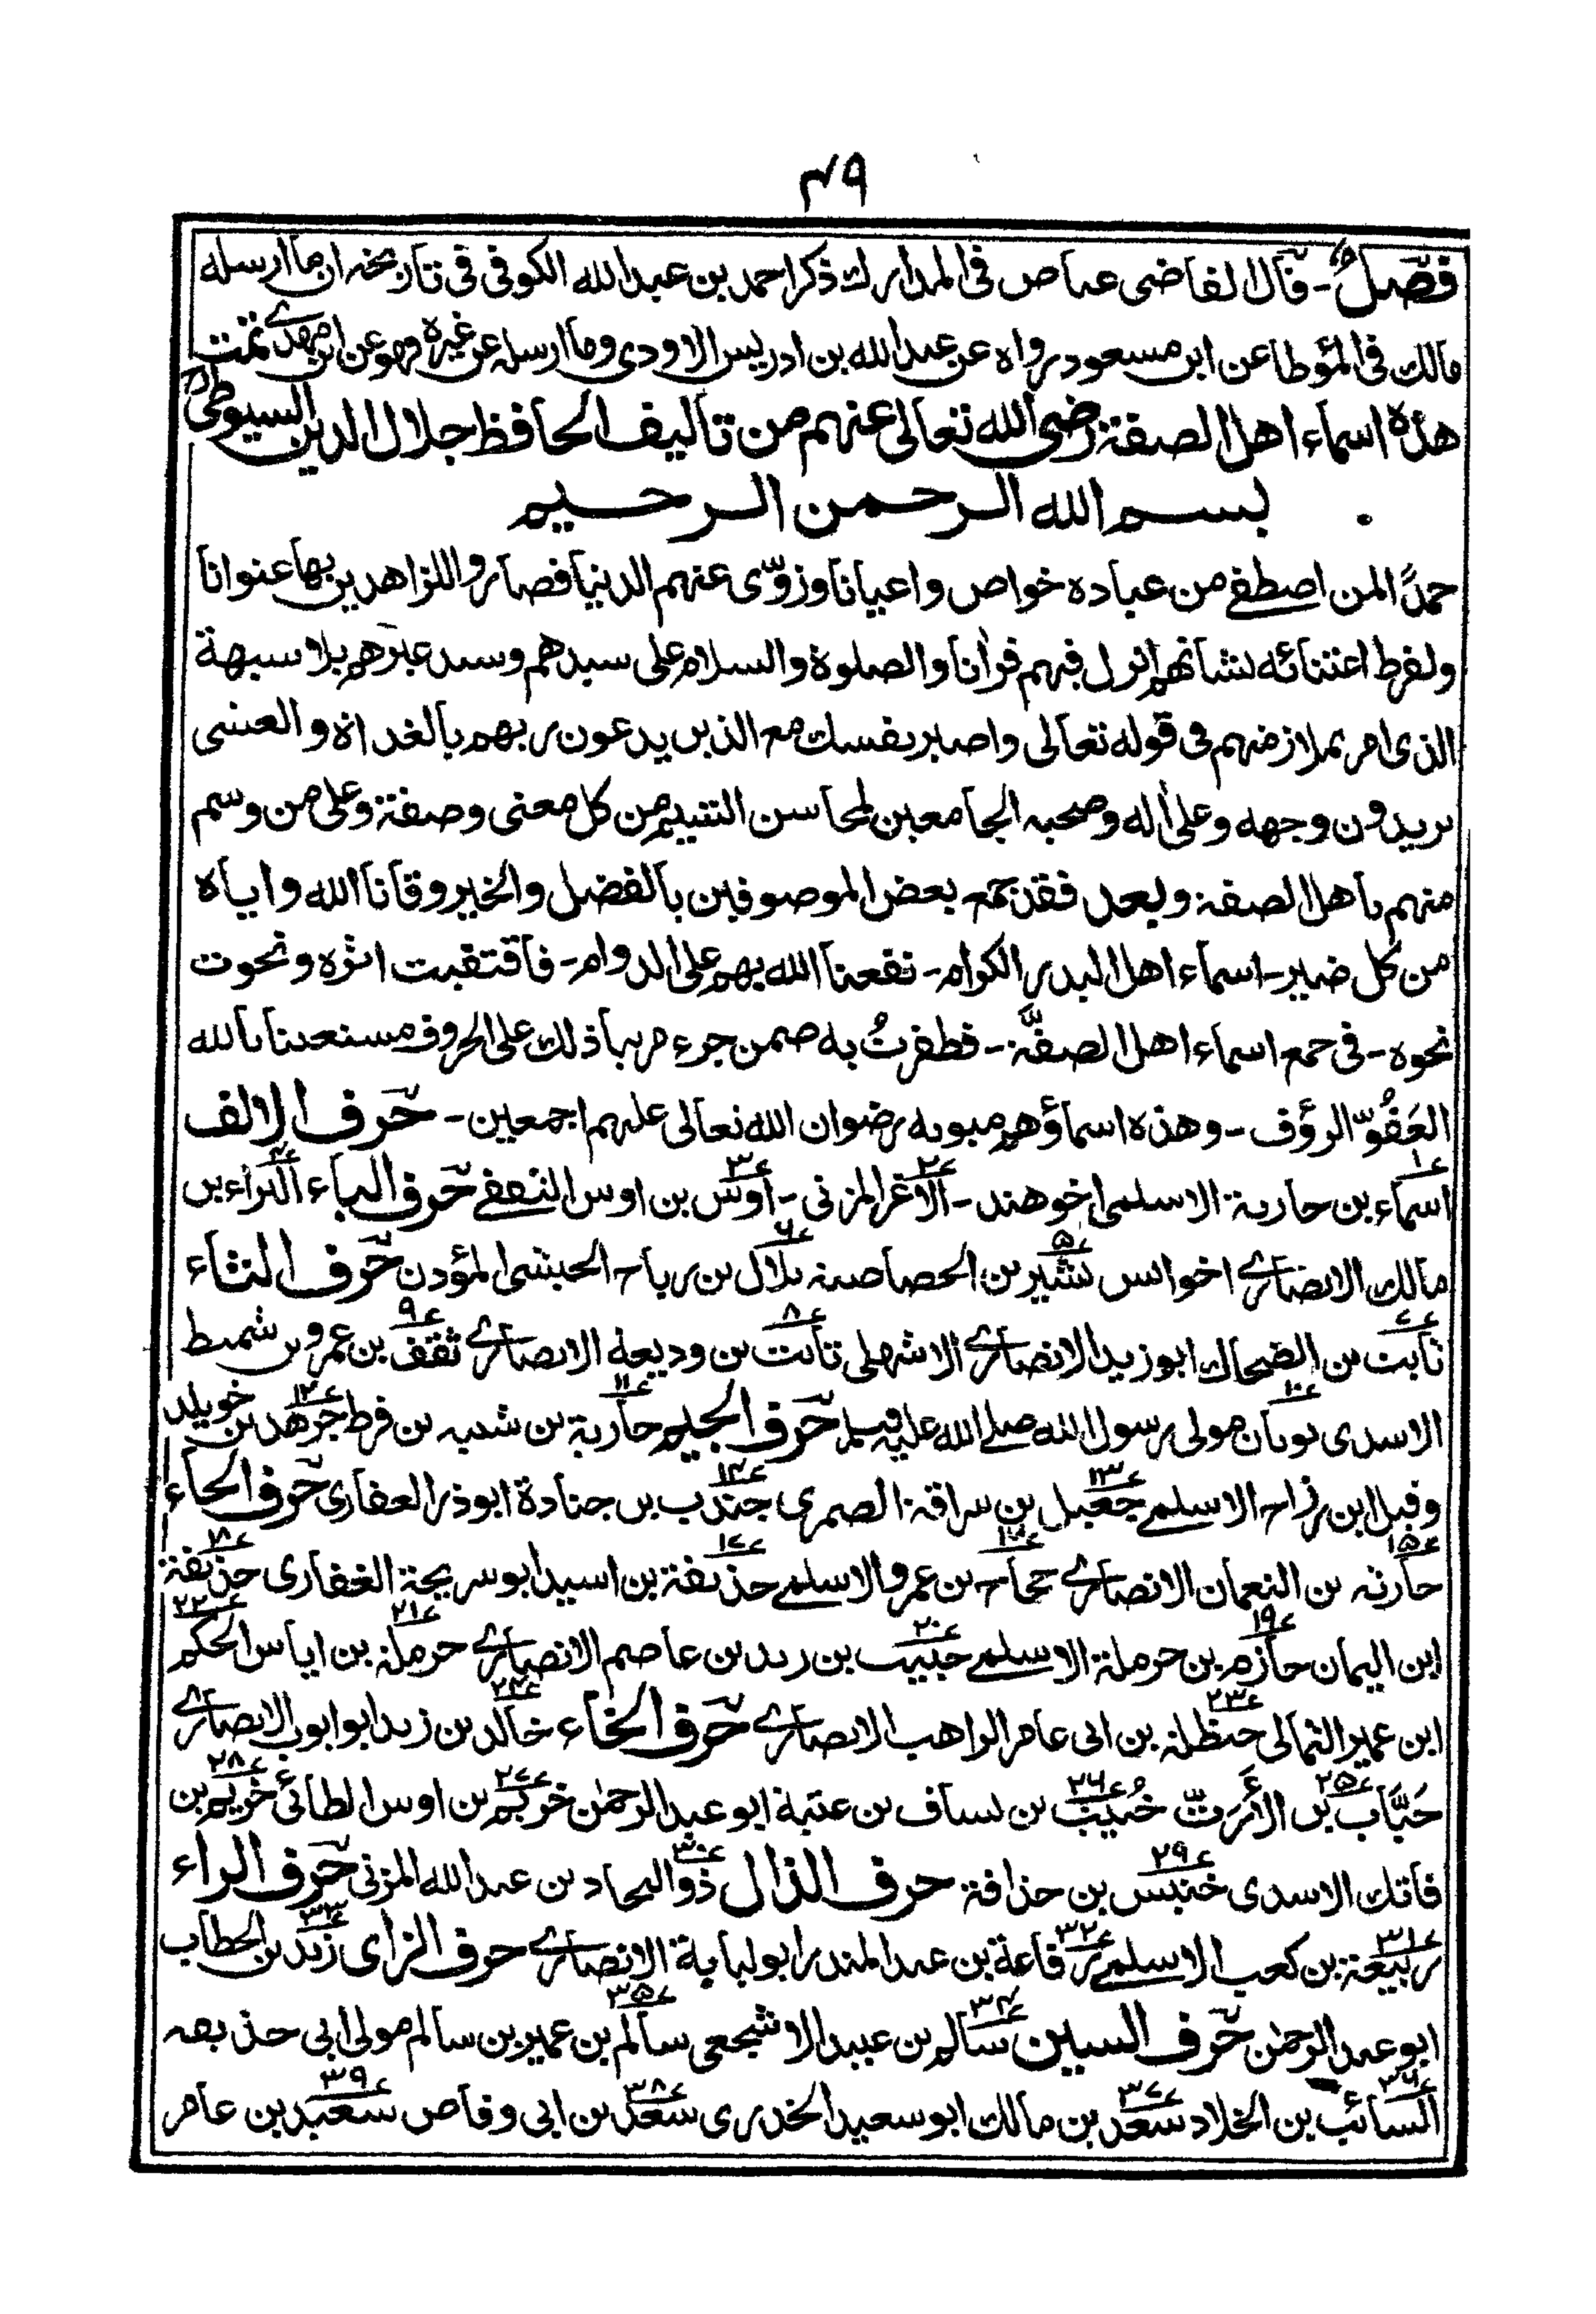 ۴۹
فصل - قال القاضی عیاض فی المدارك ذکر احمد بن عبد الله الکوفی فی تاریخه ان ما ارسله
مالك فی المؤطا عن ابن مسعود رواه عن عبد الله بن ادریس الاودی وما ارسله عن غیره فهو عن ابن مهدی تمت
هذه اسماء اهل الصفة رضی الله تعالی عنهم من تالیف الحافظ جلال الدین السیوطی رح
بسم الله الرحمن الرحیم
حمدًا لمن اصطفے من عباده خواص واعیانا وزوّی عنهم الدنیا فصاروا للزاهدین بها عنوانا
ولفرط اعتنائه بشانهم انزل فیهم قرآنا والصلوة والسلام علی سیدهم وسید غیرهم بلا شبهة
الذی امر بملازمتهم فی قوله تعالی واصبر نفسك مع الذین یدعون ربهم بالغداة والعشی
یریدون وجهه وعلی اٰله وصحبه الجامعین لمحاسن الشیم من کل معنی وصفة وعلی من وسم
منهم باهل الصفة وبعد فقد جمع بعض الموصوفین بالفضل والخیر وقانا الله وایاه
من کل ضیر - اسماء اهل البدر الکرام - نفعنا الله بهم علی الدوام - فاقتفیت اثره ونحوت
نحوه - فی جمع اسماء اهل الصفّة - فظفرتُ به ضمن جزء مرتبا ذلك علی الحروف مستعینا بالله
العَفُوّ الرؤف - وهذه اسماؤهم مبوبه رضوان الله تعالی علیهم اجمعین - حرف الالف
۱؏ اسماء بن حارثة الاسلمی اخو هند - ۲؏ الاغر المزنی - ۳؏ اوس بن اوس الثقفے حرف الباء ۴؏ البراء بن
مالك الانصاری اخو انس ۵؏ بشیر بن الخصاصیة ۶؏ بلال بن رباح الحبشی المؤذن حرف الثاء
۷؏ ثابت بن الضحاك ابو زید الانصاری الاشهلی ۸؏ ثابت بن ودیعة الانصاری ۹؏ ثقف بن عمرو بن شمیط
الاسدی ۱۰؏ ثوبان مولی رسول الله صلے الله علیه وسلم حرف الجیم ۱۱؏ جاریة بن شیبه بن قرط ۱۲؏ جرهد بن خویلد
وقیل ابن رزاح الاسلمے ۱۳؏ جعیل بن سراقة الضمری ۱۴؏ جندب بن جنادة ابوذر الغفاری حرف الحاء
۱۵؏ حارثه بن النعمان الانصاری ۱۶؏ حجاج بن عمرو الاسلمے ۱۷؏ حذیفة بن اسید ابو سریحة الغفاری ۱۸؏ حذیفة
ابن الیمان ۱۹؏ حازم بن حرملة الاسلمے ۲۰؏ حبیب بن زید بن عاصم الانصاری ۲۱؏ حرملة بن ایاس ۲۲؏ الحکم
ابن عمیر الثمالی ۲۳؏ حنظلة بن ابی عامر الراهب الانصاری حرف الخاء ۲۴؏ خالد بن زید ابو ایوب الانصاری
۲۵؏ خبّاب بن الأرتّ ۲۶؏ خُبیب بن یساف بن عتبة ابو عبد الرحمٰن ۲۷؏ خریم بن اوس الطائی ۲۸؏ خریم بن
فاتك الاسدی ۲۹؏ خنیس بن حذافة حرف الذال ۳۰؏ ذو البجاد بن عبد الله المزنی حرف الراء
۳۱؏ ربیعة بن کعب الاسلمے ۳۲؏ رفاعة بن عبد المنذر ابو لبابة الانصاری حرف الزای ۳۳؏ زید بن الخطاب
ابو عبد الرحمٰن حرف السین ۳۴؏ سالم بن عبید الاشجعی ۳۵؏ سالم بن عمیر بن سالم مولی ابی حذیفه
۳۶؏ السائب بن الخلاد ۳۷؏ سعد بن مالك ابو سعید الخدری ۳۸؏ سعد بن ابی وقاص ۳۹؏ سعید بن عامر